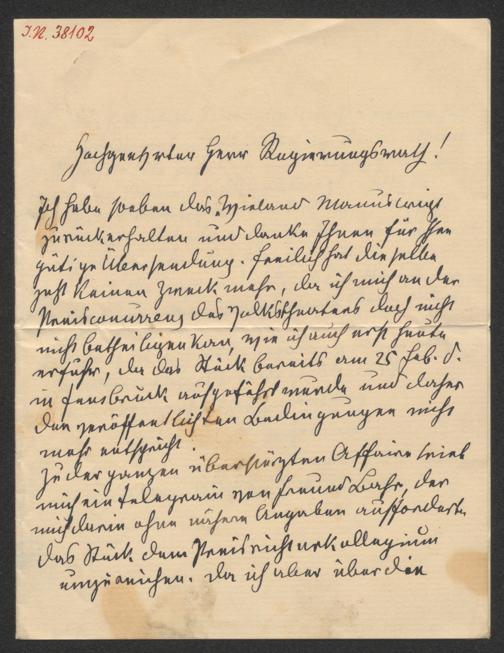 I.N. 38102
Hochgeehrter Herr Regierungsrath!
Ich habe soeben das „Wieland Manuscript
zurückerhalten und danke Ihnen für Ihre
gütige Übersendung. Freilich hat dieselbe
jetzt keinen Zweck mehr, da ich mich an der
Preisconcurrenz des Volkstheaters doch nicht
nicht betheiligen kan, wie ich auch erst heute
erfuhr, da das Stück bereits am 25 Feb. d.
in Innsbruck aufgeführt wurde und daher
den veröffentlichten Bedingungen nicht
mehr entspricht.
Zu der ganzen überstürzten Affaire trieb
mich ein Telegram von Freund Bahr, der
mich darin ohne nähere Angaben aufforderte
das Stück dem Preisrichterkollegium
einzureichen. Da ich aber über die